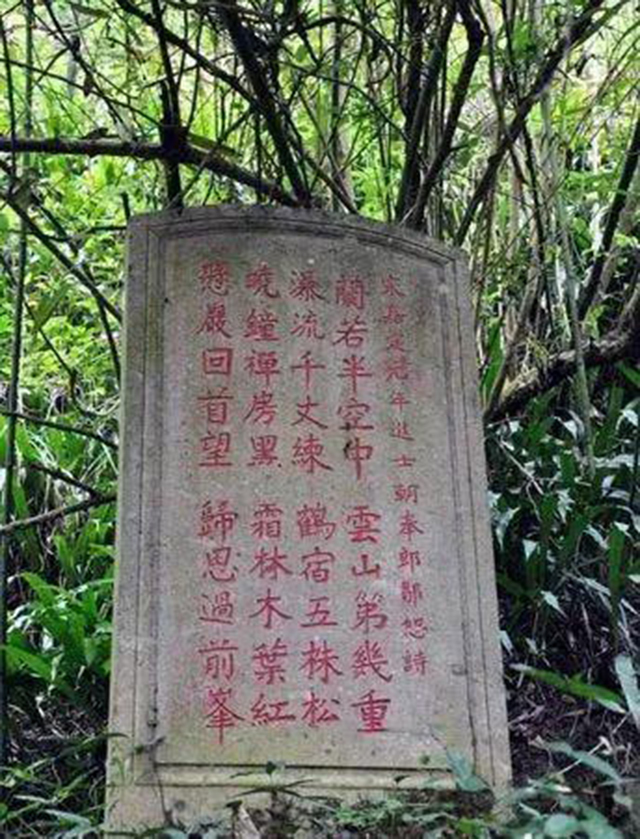 宋嘉定元年進士朝奉郎恕詩
蘭若半空中 雲山第幾重
瀑流千丈練 鶴宿五株松
曉鐘禪房黑 霜林木葉紅
懸巖回首望 歸思過前峯